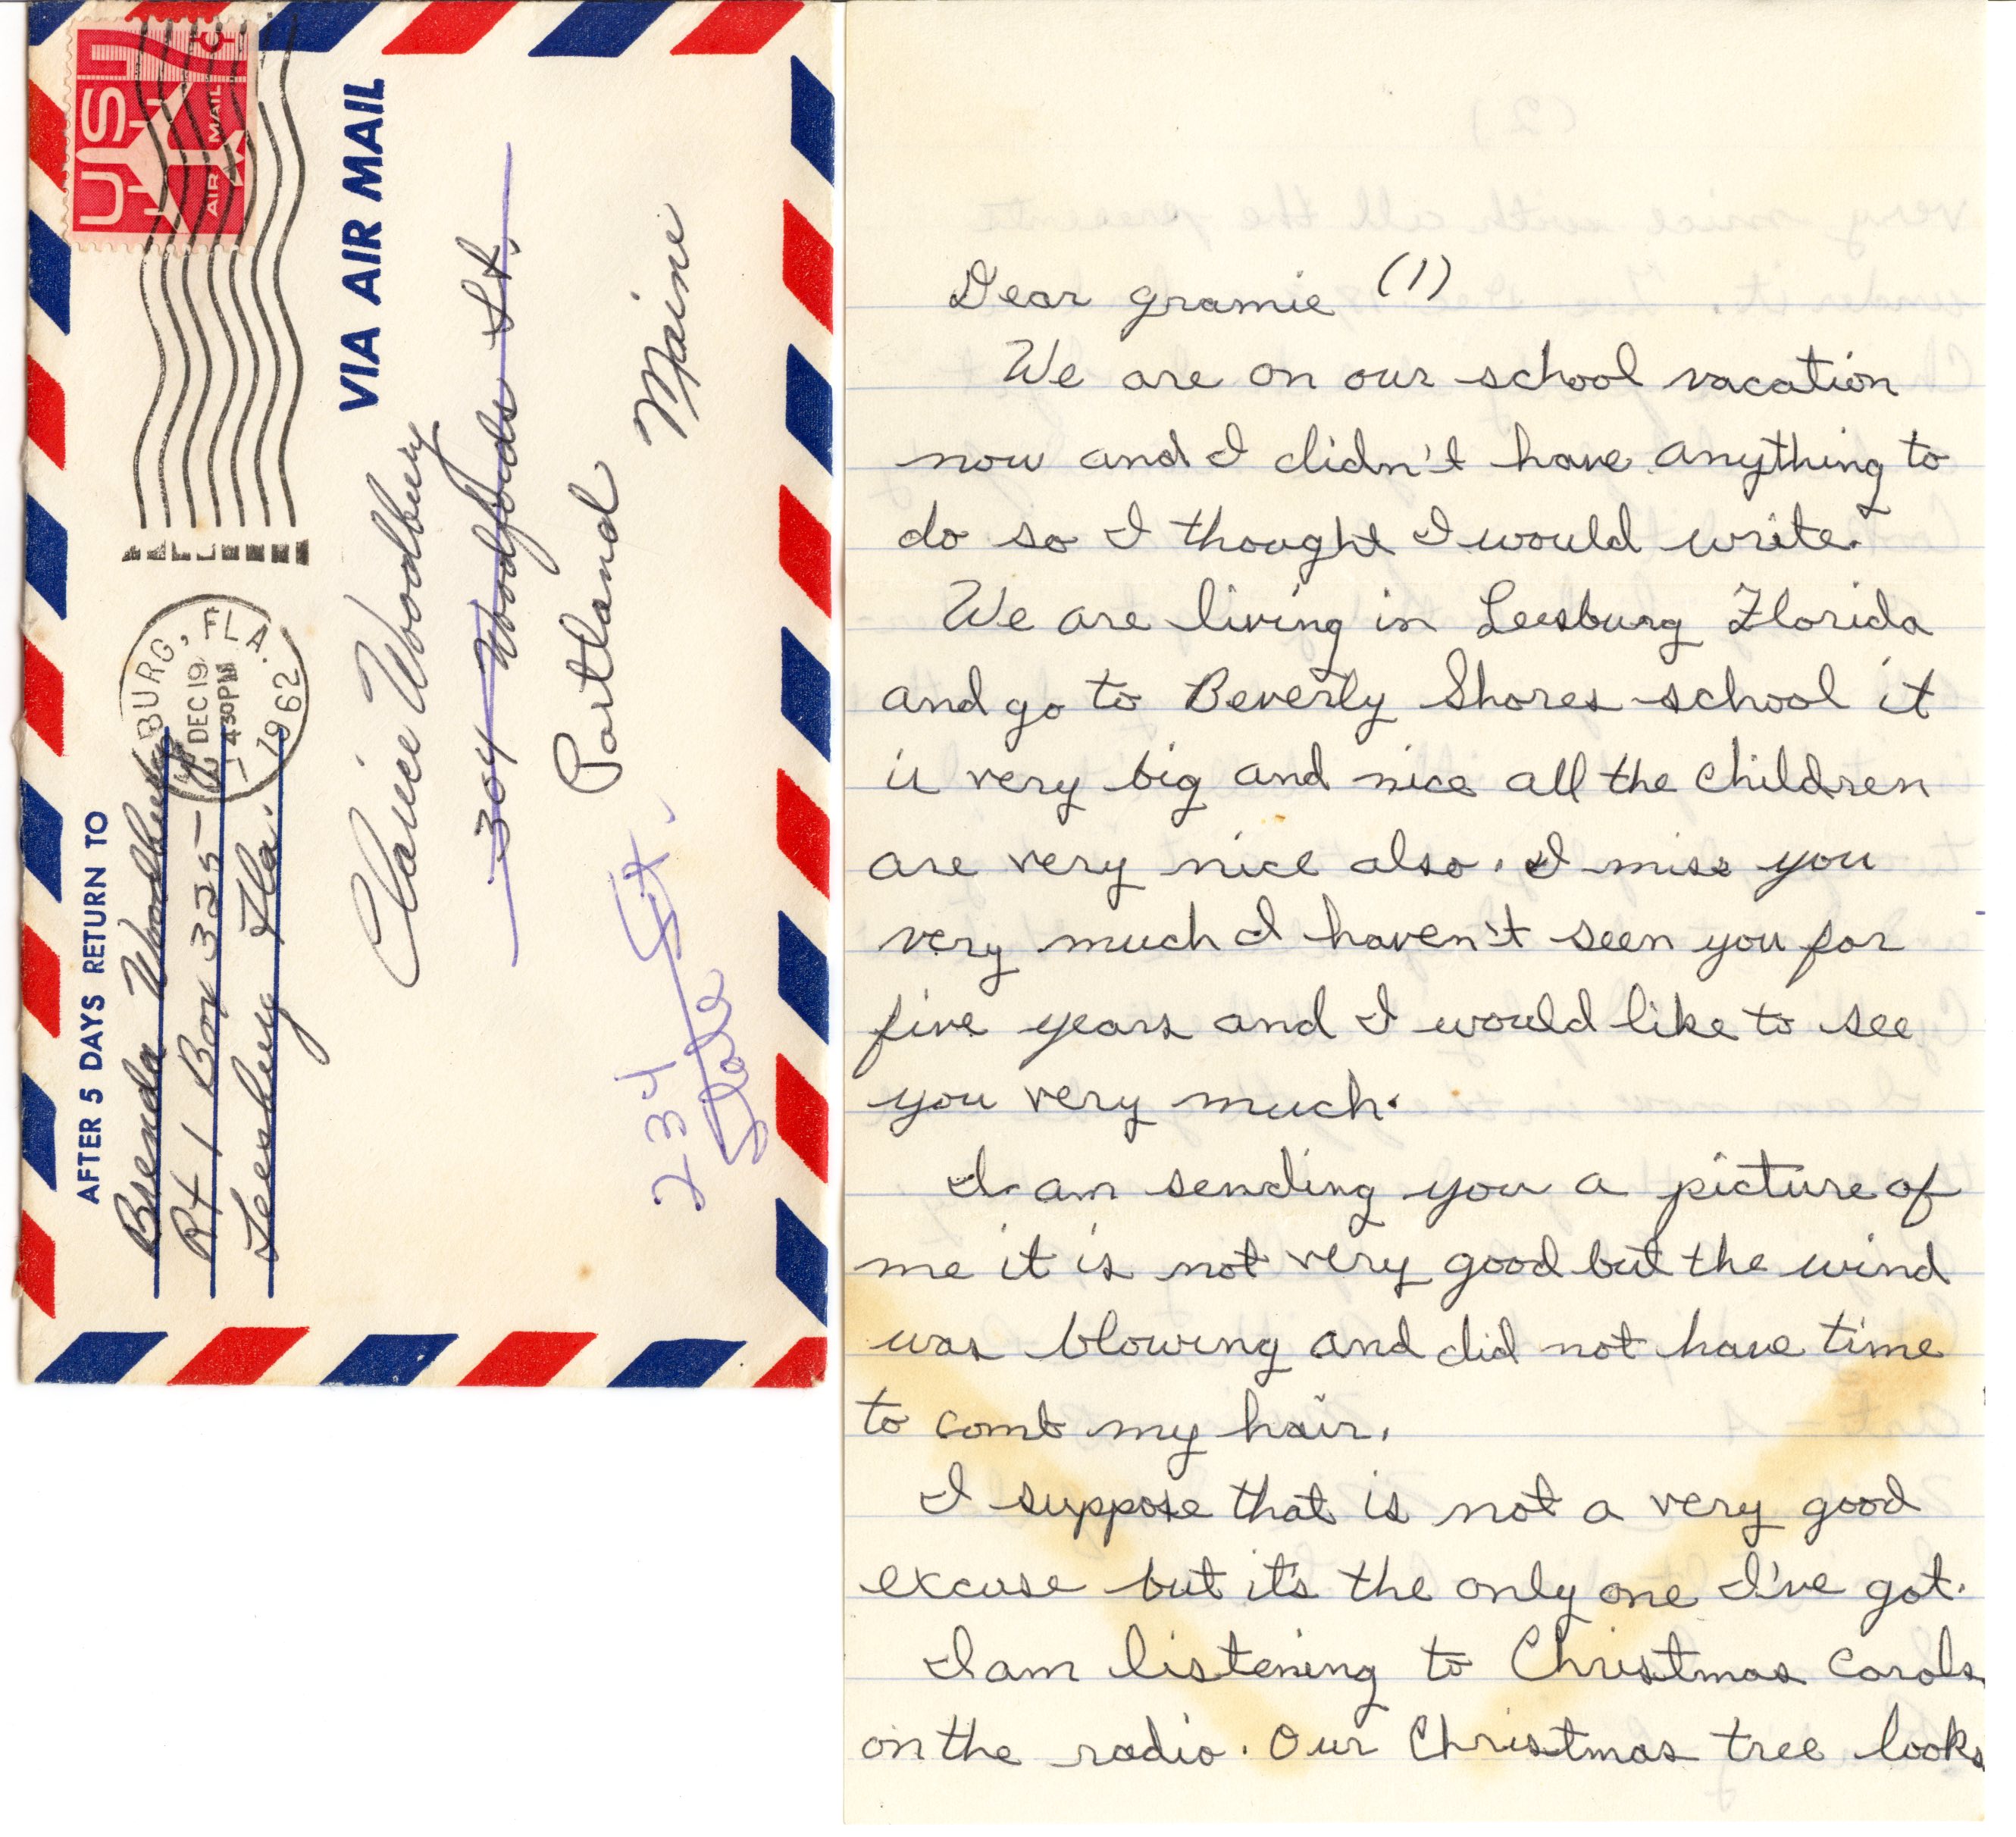 USA
AIR MAIL
7¢
AFTER 5 DAYS RETURN TO
Brenda Woodbury
Rt 1 Box 325-
Leesburg Fla.
BURG, FLA.
DEC 19
430PM
1962
VIA AIR MAIL
Clarice Woodbury
304 Woodfords St.
Portland
Maine
234
St.
(1)
Dear gramie
We are on our school vacation
now and I didn't have anything to
do so I thought I would write.
We are living in Leesburg Florida
and go to Beverly Shores school it
is very big and nice all the children
are very nice also. I miss you
very much I haven't seen you for
five years and I would like to see
you very much.
I am sending you a picture of
me it is not very good but the wind
was blowing and did not have time
to comb my hair.
I suppose that is not a very good
excuse but it's the only one I've got.
I am listening to Christmas carols
on the radio. Our Christmas tree looks